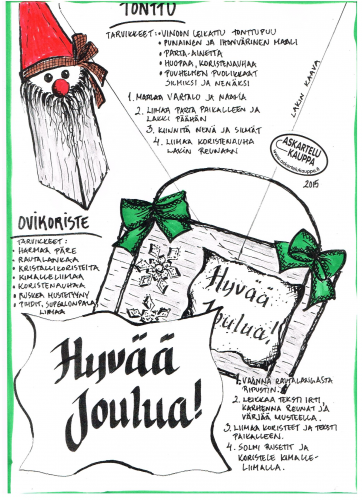 TONTTU
TARVIKKEET: • VINOON LEIKATTU TONTTUPUU
• PUNAINEN JA IHONVÄRINEN MAALI
• PARTA-AINETTA
• HUOPAA, KORISTENAUHAA
• PUUHELMEN PUOLIKKAAT
SILMIKSI JA NENÄKSI
1. MAALAA VARTALO JA NAAMA
2. LIIMAA PARTA PAIKALLEEN JA
LAKKI PÄÄHÄN
3. KIINNITÄ NENÄ JA SILMÄT
4. LIIMAA KORISTENAUHA
LAKIN REUNAAN
LAKIN KAAVA
ASKARTELU
KAUPPA
2015
OVIKORISTE
TARVIKKEET:
• HARMAA PÄRE
• RAUTALANKAA
• KRISTALLIKORISTEITA
• KIMALLELIIMAA
• KORISTENAUHAA
• RUSKEA MUSTETYYNY
• TAHDIT, SUPERLONPALA,
LIIMAA
Hyvää
Joulua!
Hyvää
Joulua!
1. VÄÄNNÄ RAUTALANGASTA
RIPUSTIN.
2. LEIKKAA TEKSTI IRTI
KARHENNA REUNAT JA
VÄRJÄÄ MUSTEELLA.
3. LIIMAA KORISTEET JA TEKSTI
PAIKALLEEN.
4. SOLMI RUSETIT JA
KORISTELE KIMALLE-
LIIMALLA.